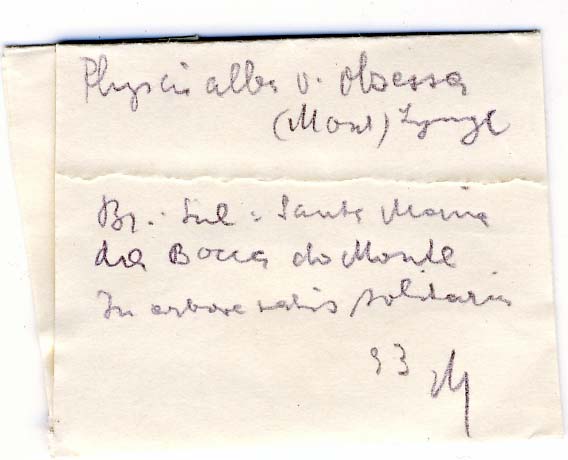 Physcia alba v. obsessa
(Mont) Lynge
Br. : Sul : Santa Maria
da Bocca do Monte
In arbore satis solitaria
93 M